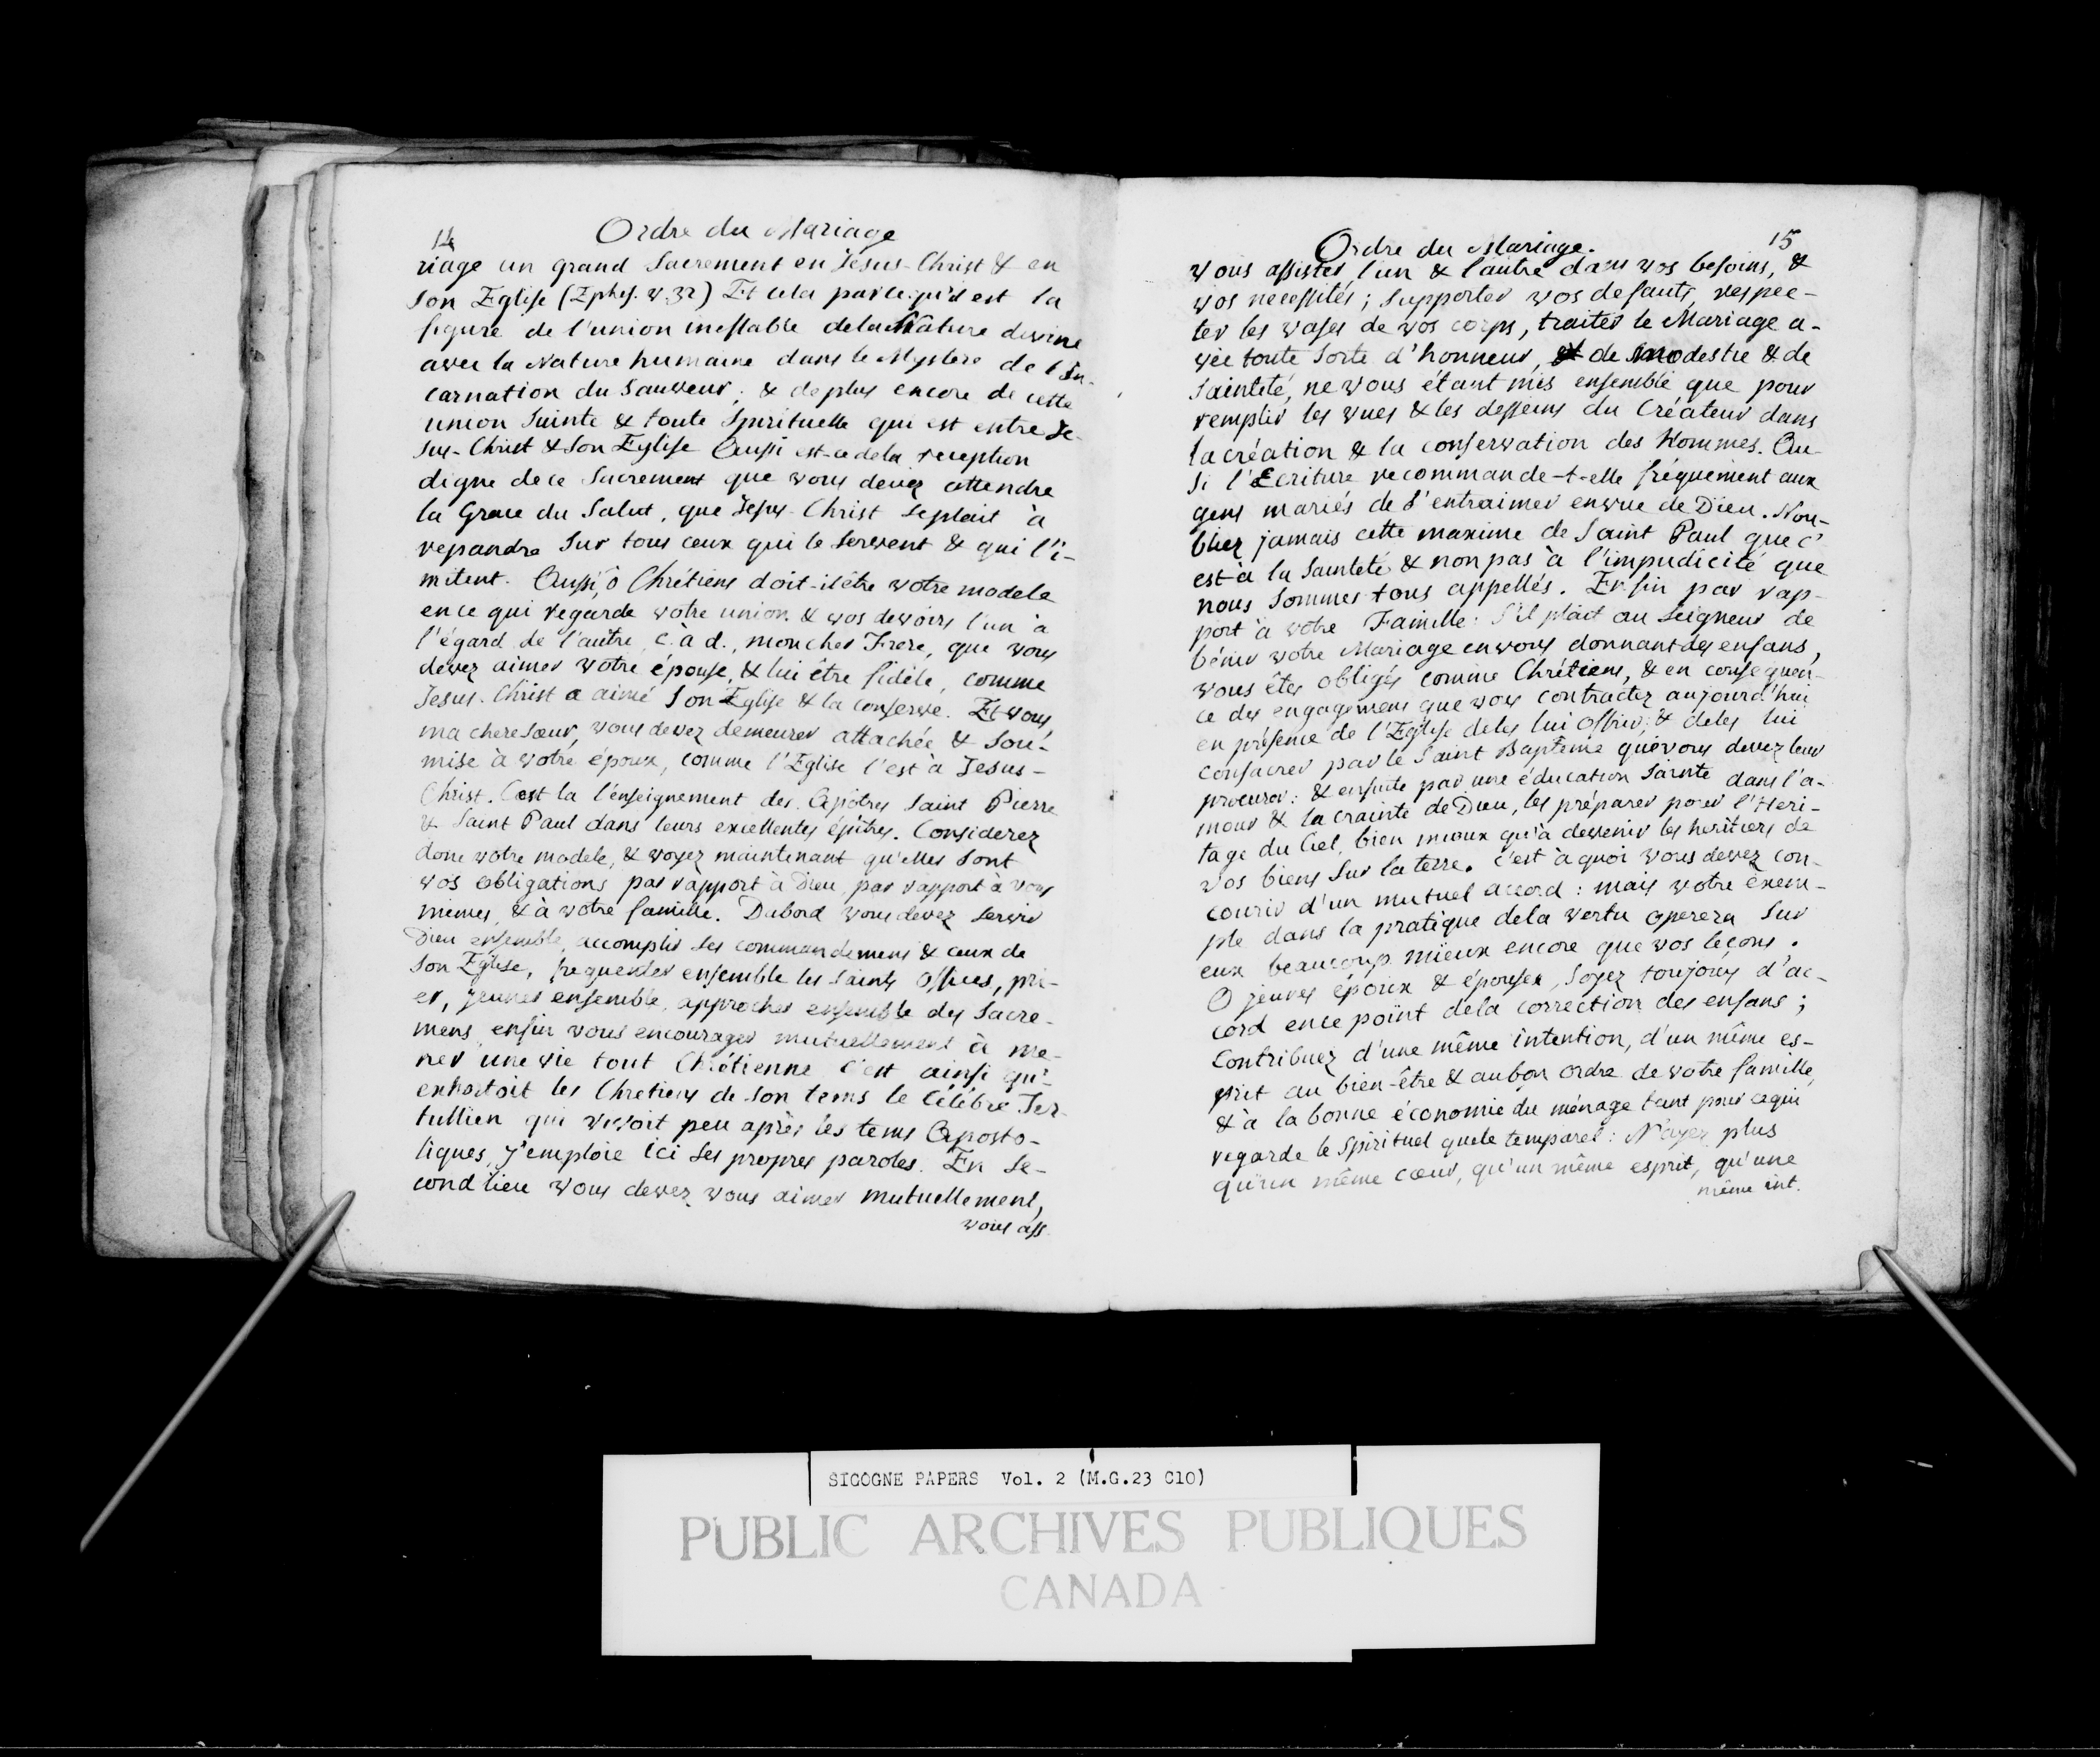 14
Ordre du Mariage
riage un grand Sacrement en Jesus-Christ & en
son Eglise (Ephes. v. 32) Et cela parcequ'il est la
figure de l'union ineffable dela Nature divine
avec la Nature humaine dans le Mystere de l'In-
carnation du Sauveur; & deplus encore de cette
union Sainte & toute Spirituelle qui est entre Je-
sus-Christ & son Eglise Aussi est-ce dela reception
digne de ce Sacrement que vous devez attendre
la Grace du Salut, que Jesus-Christ se plait à
repandre Sur tous ceux qui le servent & qui l'i-
mitent. Aussi, ô Chrétiens doit-il être votre modele
en ce qui regarde votre union & vos devoirs l'un à
l'égard de l'autre, c. à d., mon cher Frere, que vous
devez aimer votre épouse, & lui être fidéle, comme
Jesus-Christ a aimé Son Eglise & la conserve. Et vous,
ma chere Sœur, vous devez demeurer attachée & sou-
mise à votre époux, comme l'Eglise l'est à Jesus-
Christ. C'est la l'enseignement des Apôtres Saint Pierre
& Saint Paul dans leurs excellentes épitres. Considerez
donc votre modele, & voyez maintenant qu'elles sont
vos obligations par rapport à Dieu, par rapport à vous
mêmes, & à votre famille. Dabord vous devez servir
Dieu ensemble, accomplir ses commandemens & ceux de
son Eglise, frequenter ensemble les Saints Offices, pri-
er, jeuner ensemble, approcher ensemble des Sacre-
mens, enfin vous encourager mutuellement à me-
ner une vie tout Chrétienne c'est ainsi qu'-
exhortoit les Chretiens de son tems le célébre Ter-
tullien qui vivoit peu après les tems Aposto-
liques, j'emploie ici ses propres paroles. En se-
cond lieu vous devez vous aimer mutuellement,
vous ass
Ordre du Mariage.
15
vous assister l'un & l'autre dans vos besoins, &
vos necessités; supporter vos defauts, respec-
ter les vases de vos corps, traiter le Mariage a-
vec toute sorte d'honneur, & de modestie & de
Sainteté, ne vous étant mis ensemble que pour
remplir les vues & les desseins du Créateur dans
la création & la conservation des Hommes. Au-
si l'Ecriture recommande-t-elle fréquement aux
gens mariés de s'entraimer en vue de Dieu. Nou-
bliez jamais cette maxime de Saint Paul que c'
est à la Sainteté & non pas à l'impudicité que
nous Sommes tous appellés. Enfin par rap-
port à votre Famille: S'il plait au Seigneur de
bénir votre Mariage en vous donnant des enfans,
vous êtes obligés comme Chrétiens, & en consequen-
ce des engagemens que vous contractez aujourd'hui
en présence de l'Eglise deles lui offrir, & deles lui
consacrer par le Saint Baptême que vous devez leur
procurer: & ensuite par une éducation Sainte dans l'a-
mour & la crainte de Dieu, les préparer pour l'Heri-
tage du Ciel, bien mieux qu'à devenir les heritiers de
vos biens sur la terre. C'est à quoi vous devez con-
courir d'un mutuel accord: mais votre exem-
ple dans la pratique dela vertu operera Sur
eux beaucoup mieux encore que vos leçons.
O jeunes époux & épouses, Soyez toujours d'ac-
cord en ce point dela correction des enfans;
Contribuez d'une même intention, d'un même es-
prit au bien-être & au bon ordre de votre famille,
& à la bonne économie du ménage tant pour cequi
regarde le Spirituel quele temporel: N'ayez plus
qu'un même cœur, qu'un même esprit, qu'une
même int.
SIGOGNE PAPERS Vol. 2 (M.G.23 C10)
PUBLIC ARCHIVES PUBLIQUES
CANADA